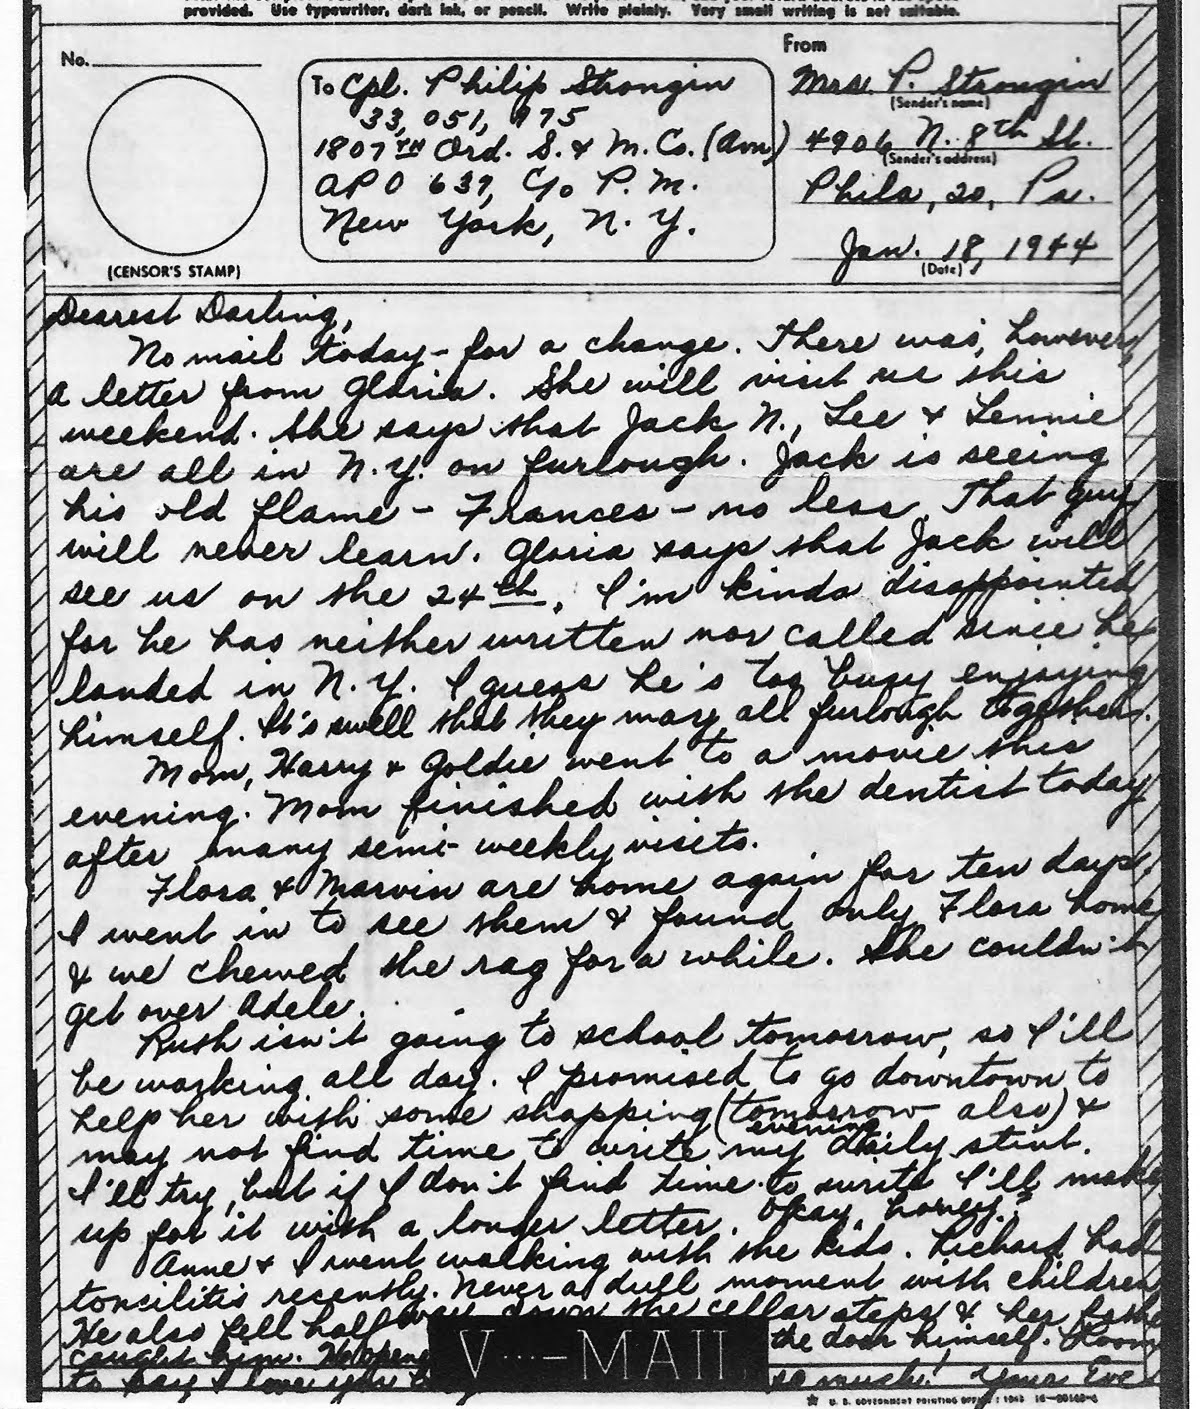 provided. Use typewriter, dark ink, or pencil. Write plainly. Very small writing is not suitable.
No.
(CENSOR'S STAMP)
To Cpl. Philip Strongin
33,051,975
1807TH Ord. S. & M. Co. (Avn)
APO 639, C/o P.M.
New York, N.Y.
From
Mrs. P. Strongin
(Sender's name)
4906 N. 8th St.
(Sender's address)
Phila, 20, Pa.
Jan. 18, 1944
(Date)
Dearest Darling,
No mail today - for a change. There was, however,
a letter from Gloria. She will visit us this
weekend. She says that Jack N., Lee & Lennie
are all in N.Y. on furlough. Jack is seeing
his old flame - Frances - no less. That guy
will never learn. Gloria says that Jack will
see us on the 24th. I'm kinda disappointed
for he has neither written nor called since he
landed in N.Y. I guess he's too busy enjoying
himself. It's swell that they may all furlough together.
Mom, Harry & Goldie went to a movie this
evening. Mom finished with the dentist today
after many semi-weekly visits.
Flora & Marvin are home again for ten days.
I went in to see them & found only Flora home
& we chewed the rag for a while. She couldn't
get over Adele.
Ruth isn't going to school tomorrow, so I'll
be working all day. I promised to go downtown to
help her with some shopping (tomorrow also) &
evening
may not find time to write my daily stint.
I'll try, but if I don't find time to write I'll make
up for it with a longer letter. Okay, honey?
Anne & I went walking with the kids. Richard had
toncilitis recently. Never a dull moment with children
He also fell half way down the cellar steps & her
caught him. He opened the door himself. Room
to say I love you so much! Your Eve
V···—MAIL
U. S. GOVERNMENT PRINTING OFFICE : 1943